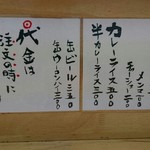 メンマ 二〇〇
チャーシュー 二〇〇
カレーライス 五〇〇
半カレーライス 三〇〇
缶ビール 三五〇
缶ウーロンハイ 三〇〇
代金は
注文の時に